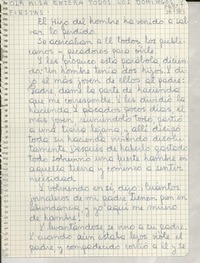 OIR MISA ENTERA TODOS LOS DOMINGOS Y
FIESTAS
El Hijo del hombre ha venido a sal
var lo perdido.
Se acercaban a él todos los publi
canos y pecadores para oirle.
Y les propuso esta parábola dicien
do: Un hombre tenía dos hijos y di
jo el más joven de ellos al padre:
Padre dame la parte de hacienda
que me corresponde y les dividió la
hacienda y pasados pocos días el
más joven, reuniéndolo todo partió
a una tierra lejana y allí disipó
toda su hacienda viviendo disolu
tamente y después de haberlo gastado
todo sobrevino una fuerte hambre en
aquella tierra y comenzó a sentir
necesidad.
Y volviendo en sí dijo: Cuantos
jornaleros de mi padre tienen pan en
abundancia y yo aquí me muero
de hambre!
Y levantándose se vino a su padre.
Y cuando aún estaba lejos viole su
padre y compadecido corrió a él y se